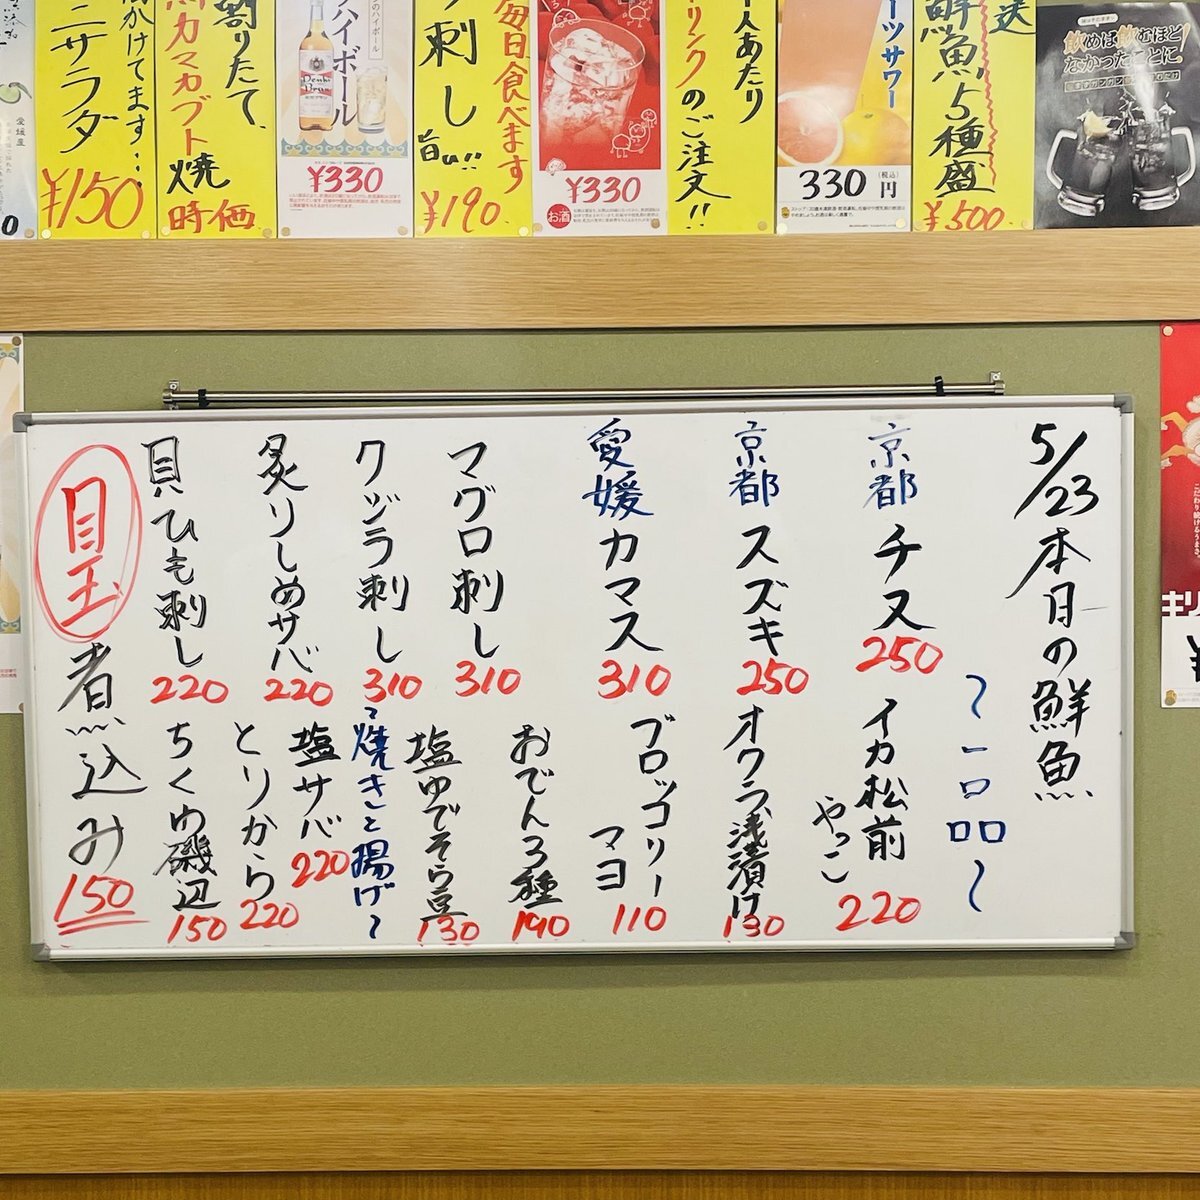 5/23 本日の鮮魚
京都 チヌ 250
京都 スズキ 250
愛媛 カマス 310
マグロ刺し 310
クジラ刺し 310
炙りしめサバ 220
貝ひも刺し 220
~一品~
イカ松前
やっこ 220
オクラ浅漬け 130
ブロッコリー
マヨ 110
おでん3種 190
塩ゆでそら豆 130
~焼きと揚げ~
塩サバ 220
とりから 220
ちくわ磯辺 150
目玉
煮込み 150
送
鮮魚5種盛
¥500
ーツサワー
330円
(税込)
人あたり
リンクのご注文!!
毎日食べます
¥330
お酒
刺し
旨い!!
¥190
ハイボール
¥330
割りたて、
カマカブト焼
時価
かけてます…
ニサラダ
¥150
飲めば飲むほど
なかったことに
愛媛産
キリ